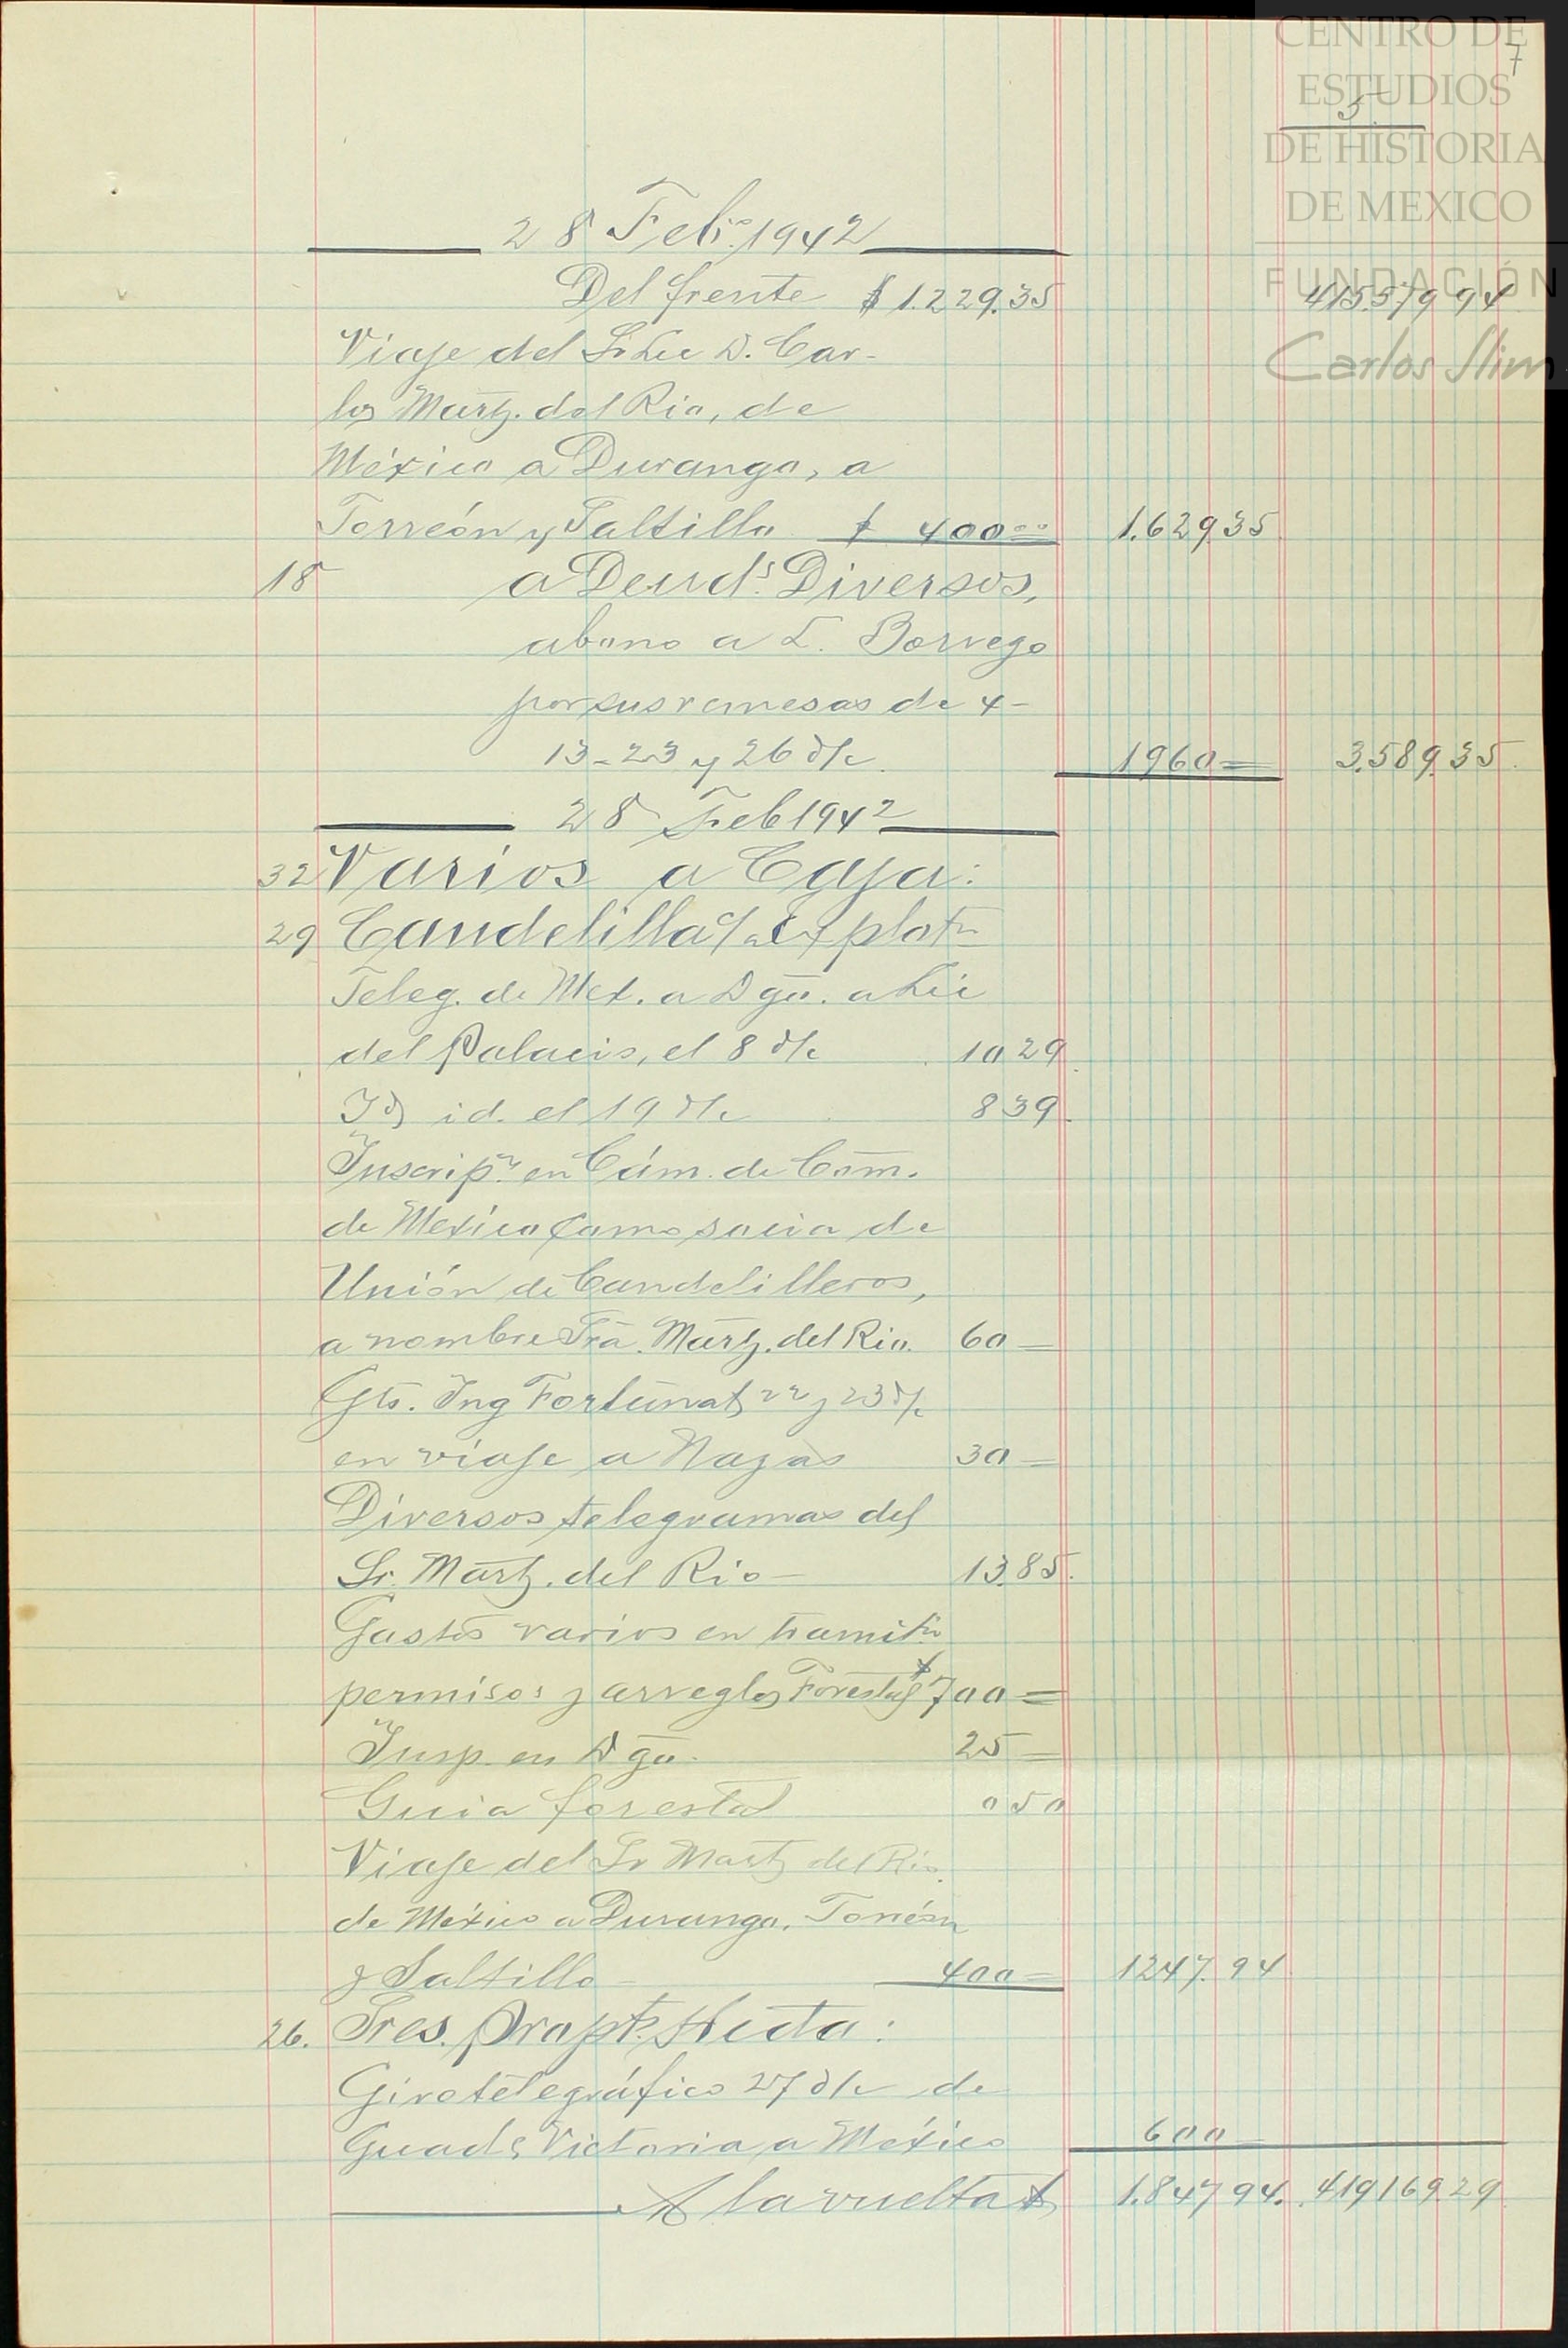 CENTRO DE
ESTUDIOS
DE HISTORIA
DE MEXICO
FUNDACIÓN
Carlos Slim
7
5
28 Feb.º 1942
Del frente $ 1.229.35 415.579 94
Viaje del Sr Lic D. Car-
los Martz. del Rio, de
México a Durango, a
Torreón y Saltillo $ 400 00 1.629.35
18 a Deuds. Diversos,
abono a L. Borrego
por sus remesas de 4-
13-23 y 26 d/c. 1960= 3.589.35.
28 Feb 1942
32 Varios a Caja:
29 Candelilla c/ de Explotn
Teleg. de Mex. a Dgo. a Lic
del Palacio, el 8 d/c 10 29
Id id. el 19 d/c 8 39.
Inscripn. en Cám. de Com.
de México como socia de
Unión de Candelilleros,
a nombre Fra. Martz. del Rio. 60=
Gts. Ing Fortunat 22 y 23 d/c
en viaje a Nazas 30=
Diversos telegramas del
Sr. Martz. del Rio- 13.85.
Gastos varios en tramitn
permisos y arreglos Forestal $ 700=
Insp. en Dgo. 25=
Guia forestal 0 50
Viaje del Sr Martz del Rio.
de México a Durango. Torreón
y Saltillo- 400= 1247.94
26. Sres. Propts. Hcda:
Giro telegráfico 27 d/c de
Guade Victoria a México 600=
A la vuelta $ 1.847 94. 419169 29